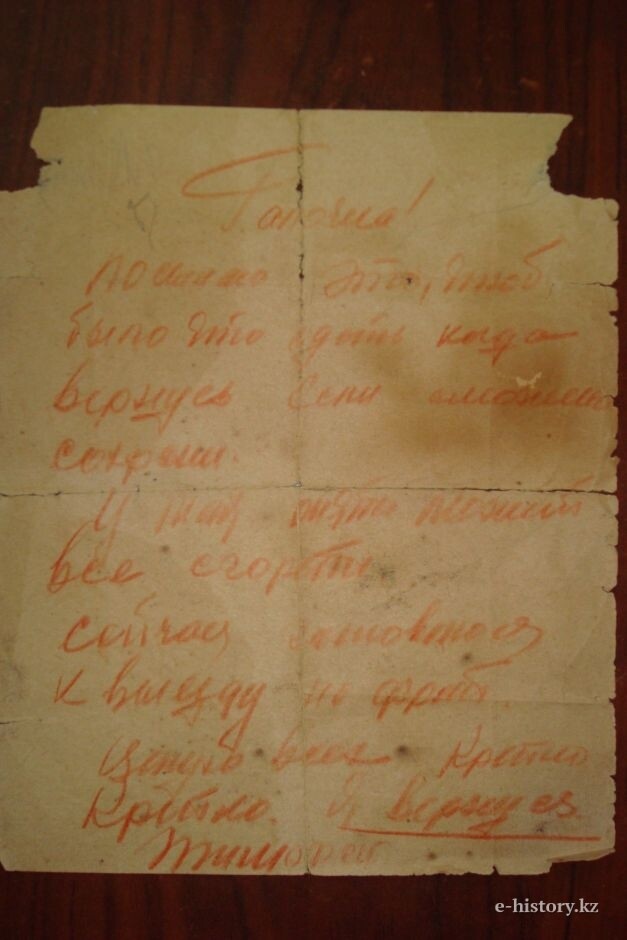 Галочка!
это, чтоб
было что одеть когда
вернусь Если сможешь
сохрани.
У нас
все
сейчас готовлюсь
к выезду на фронт.
Целую всех Крепко
Крепко. Я вернусь
Тимофей
e-history.kz